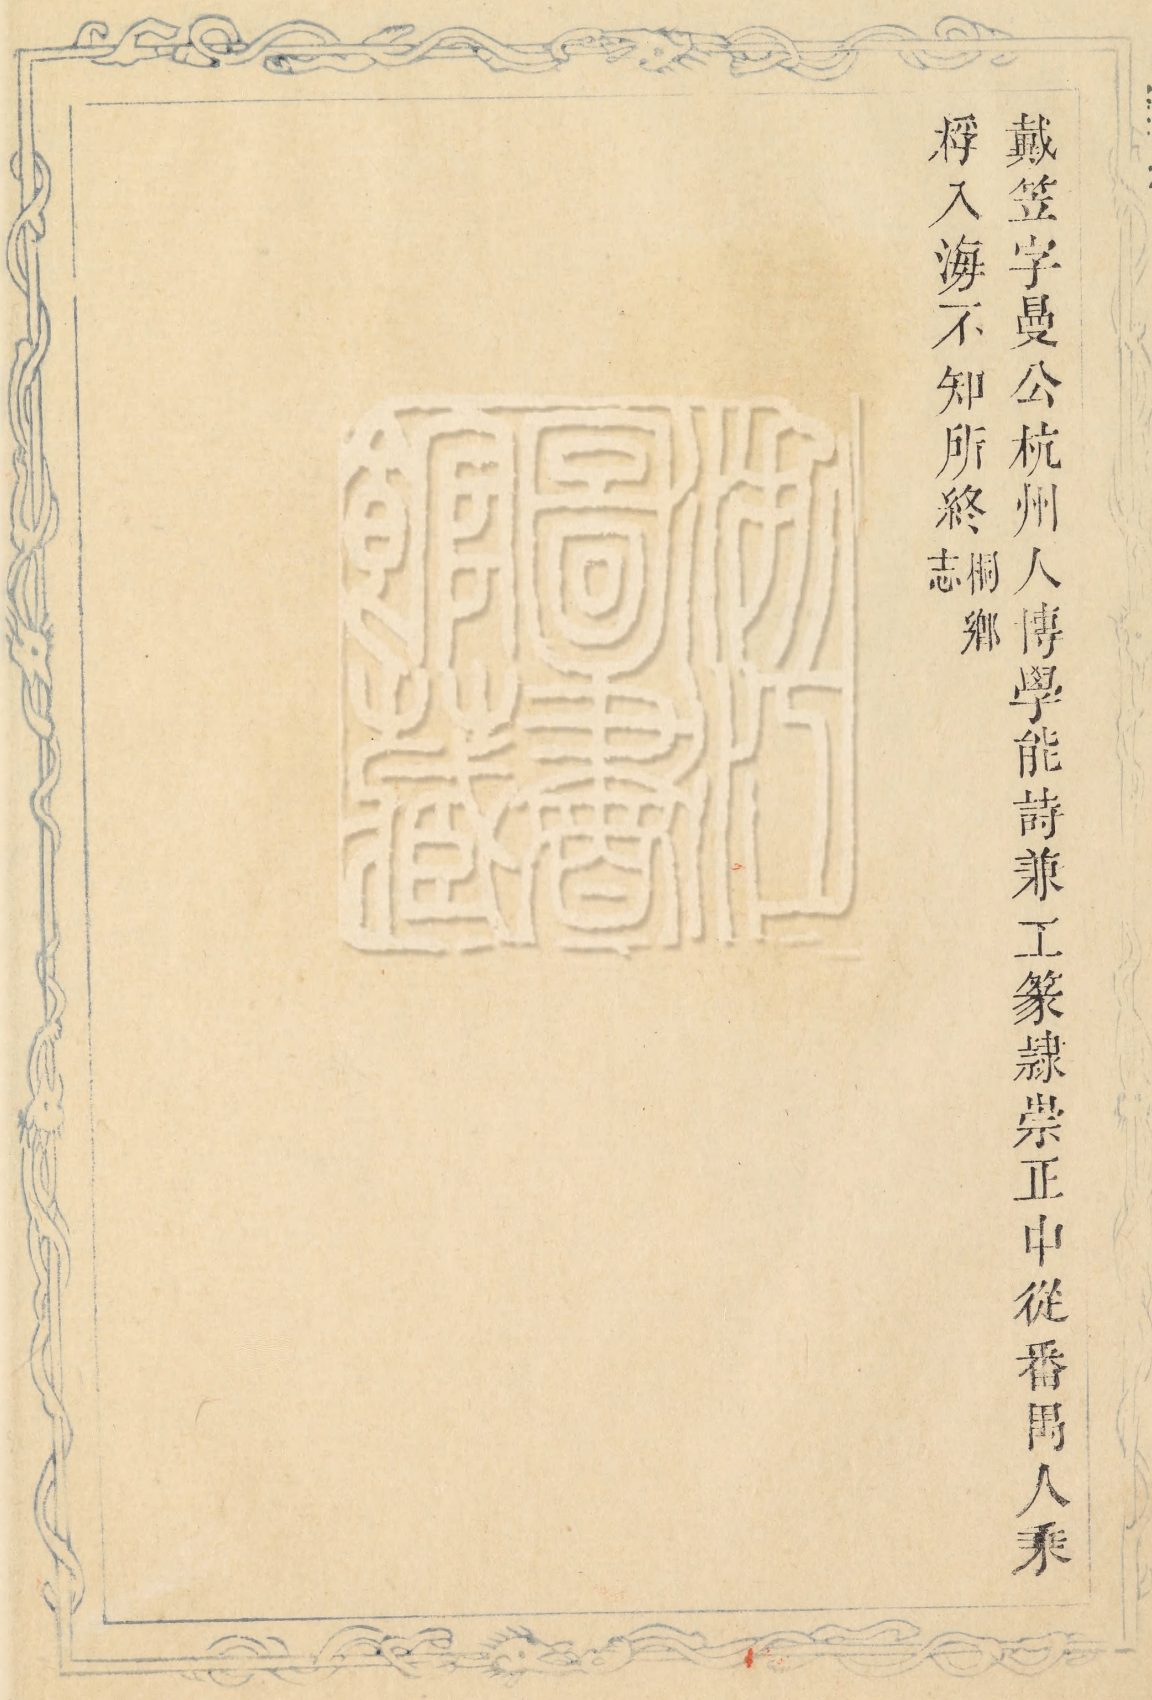 戴笠字曼公杭州人博學能詩兼工篆隸崇正中從番禺人乘
桴入海不知所終桐鄉
志
浙江
圖書
館藏